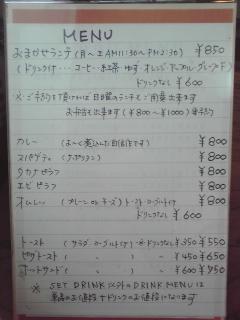 MENU
おまかせランチ (月〜土 AM11:30〜PM2:30) ¥850
(ドリンク付… コーヒー 紅茶 ゆず オレンジ アップル グレープF)
ドリンクなし ¥600
※ ご予約を頂ければ 日曜のランチもご用意出来ます
お弁当も出来ます (¥800〜¥1000) 要予約
カレー (よ〜く煮込んだ自信作です) ¥800
スパゲティ (ナポリタン) ¥800
タカナピラフ ¥800
エビピラフ ¥800
オムレツ (プレーン or チーズ) トースト・ヨーグルト付 ¥800
ドリンクなし ¥600
トースト (サラダ ヨーグルト付) ドリンクなし ¥350 ¥550
ピザトースト ( 〃 〃 ) 〃 ¥450 ¥650
ホットサンド ( 〃 〃 ) 〃 ¥600 ¥750
※ SET DRINK 以外のDRINK MENUは
単品のお値段+ドリンクのお値段になります